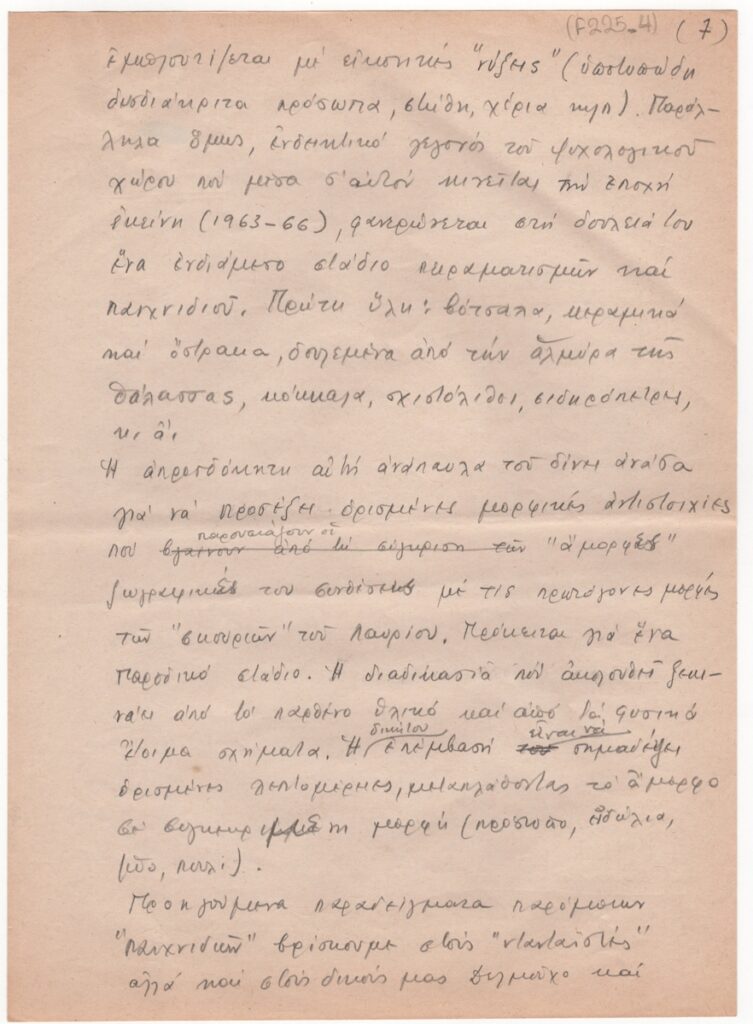 (F225-4) (7)
ἐμπλουτίζεται μέ εἰκαστικές "νύξεις" (ὑποτυπώδη
δυσδιάκριτα πρόσωπα, στήθη, χέρια κτλ). Παράλ-
ληλα ὅμως, ἐνδεικτικό γεγονός τοῦ ψυχολογικοῦ
χώρου πού μέσα σ'αὐτόν κινεῖται τήν ἐποχή
ἐκείνη (1963-66), φανερώνεται στή δουλειά του
ἕνα ἐνδιάμεσο στάδιο πειραματισμῶν καί
παιχνιδιοῦ. Πρώτη ὕλη: βότσαλα, κεραμικά
καί ὄστρακα, δουλεμένα ἀπό τήν ἁλμύρα τῆς
θάλασσας, κόκκαλα, σχιστόλιθοι, σιδηρόπετρες,
κ. ἄ.
Ἡ ἀπροσδόκητη αὐτή ἀνάπαυλα τοῦ δίνει ἀνάσα
γιά νά προσέξει ὁρισμένες μορφικές ἀντιστοιχίες
παρουσιάζουν οἱ
πού βγαίνουν ἀπό τή σύγκριση τῶν "ἄμορφες"
ζωγραφικές του συνθέσεις μέ τίς πρωτόγονες μορφές
τῶν "σκουριῶν" τοῦ Λαυρίου. Πρόκειται γιά ἕνα
παροδικό στάδιο. Ἡ διαδικασία πού ἀκολουθεῖ ξεκι-
νάει ἀπό τό παρθένο ὑλικό καί ἀπό τά φυσικά
δική του εἶναι νά
ἕτοιμα σχήματα. Ἡ ἐπέμβασή του σημαδέψει
ὁρισμένες λεπτομέρειες, μεταπλάθοντας τό ἄμορφο
σέ συγκεκριμένη μορφή (πρόσωπο, εἰδώλια,
ζῶο, πουλί).
Προηγούμενα παραδείγματα παρόμοιων
"παιχνιδιῶν" βρίσκουμε στούς "ντανταϊστές"
ἀλλά καί στούς δικούς μας καί